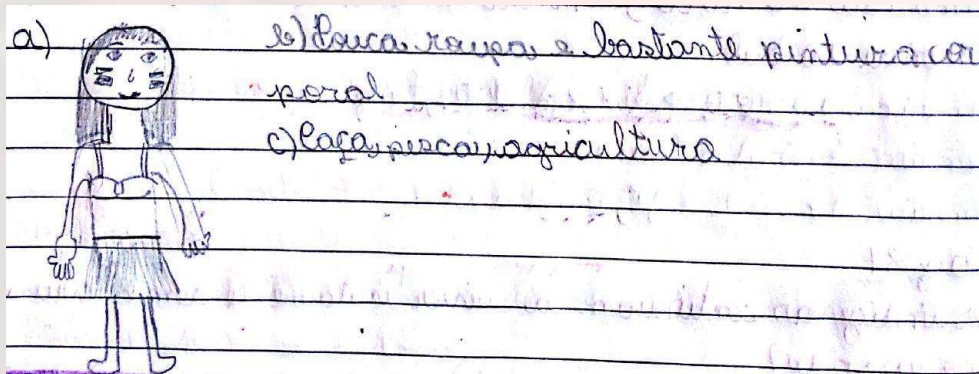 a)
b) Pouca roupa e bastante pintura cor
poral
c) Caça, pesca, agricultura